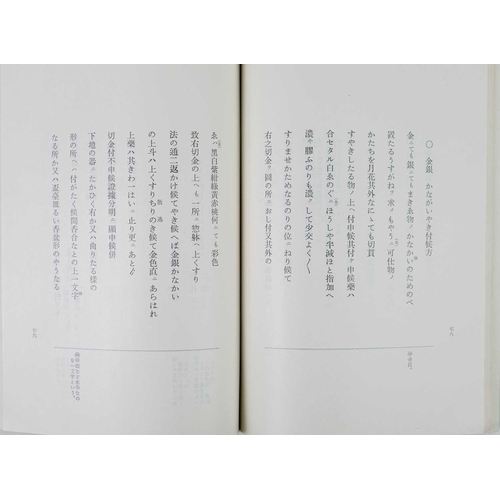 〇　金銀　かながいやき付候方
金ニても銀ニてもまき゛ゑ物ノかなかいのためのべ
置たるうすがねヲ求メもやうヲ可仕物ノ
かたちを月花其外なにゝても切貫
すやきしたる物ノ上ヘ付申候其付ケ申候藥ハ
合セタル白ゑのぐヲほうしや半減ほと指加へ
濃ク膠ふのりも濃クして少交よく〳〵
すりませかためなるのりの位ニねり候て
右之切金ヲ圖の所ニおし付又其外の
七八
ゑヘ黑白紫紺綠黃赤桃何ニても彩色
致右切金の上ヘも一所ニ惣躰ヘ上くすり
法の通二返かけ候てやき候へば金銀かなかい
の上斗ハ上くすりちりのき候て金色直ニあらはれ
上樂ハ其きわ一はいニ止り更ニあとㇾ
切金付不申候證據分明ニ顯申候併
下地の器ニたかひく有か又ハ曲りたる樣の
形の所ヘハ付がたく候間香合なとの上一文字
なる所か又ハ盃臺風るい香盆形のやうなる
七九